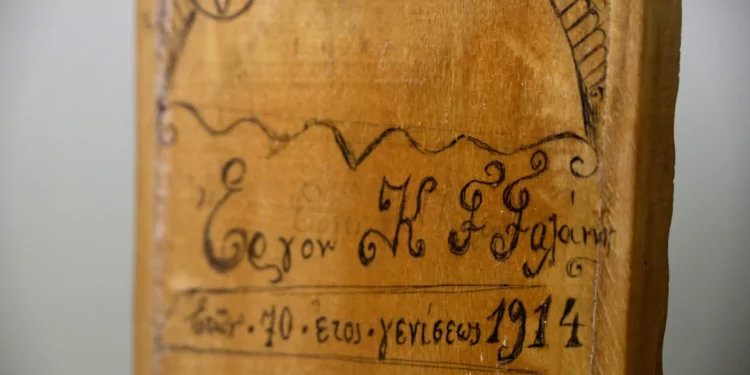 Ἔργον Κ Γ Γαλάκη
Ἐτῶν · 70 · ἔτος · γενίσεως 1914